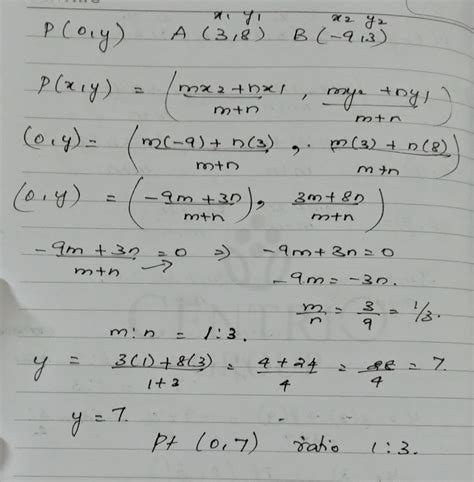 x₁ y₁ x₂ y₂
P(0,y) A(3,8) B(-9,3)
P(x,y) = (mx₂+nx₁/m+n, my₂+ny₁/m+n)
(0,y) = (m(-9)+n(3)/m+n, m(3)+n(8)/m+n)
(0,y) = (-9m+3n/m+n), 3m+8n/m+n)
-9m+3n/m+n = 0 ⇒ -9m+3n=0
-9m=-3n.
m/n = 3/9 = 1/3.
m:n = 1:3.
y = 3(1)+8(3)/1+3 = 4+24/4 = 28/4 = 7.
y=7.
Pt (0,7) ratio 1:3.